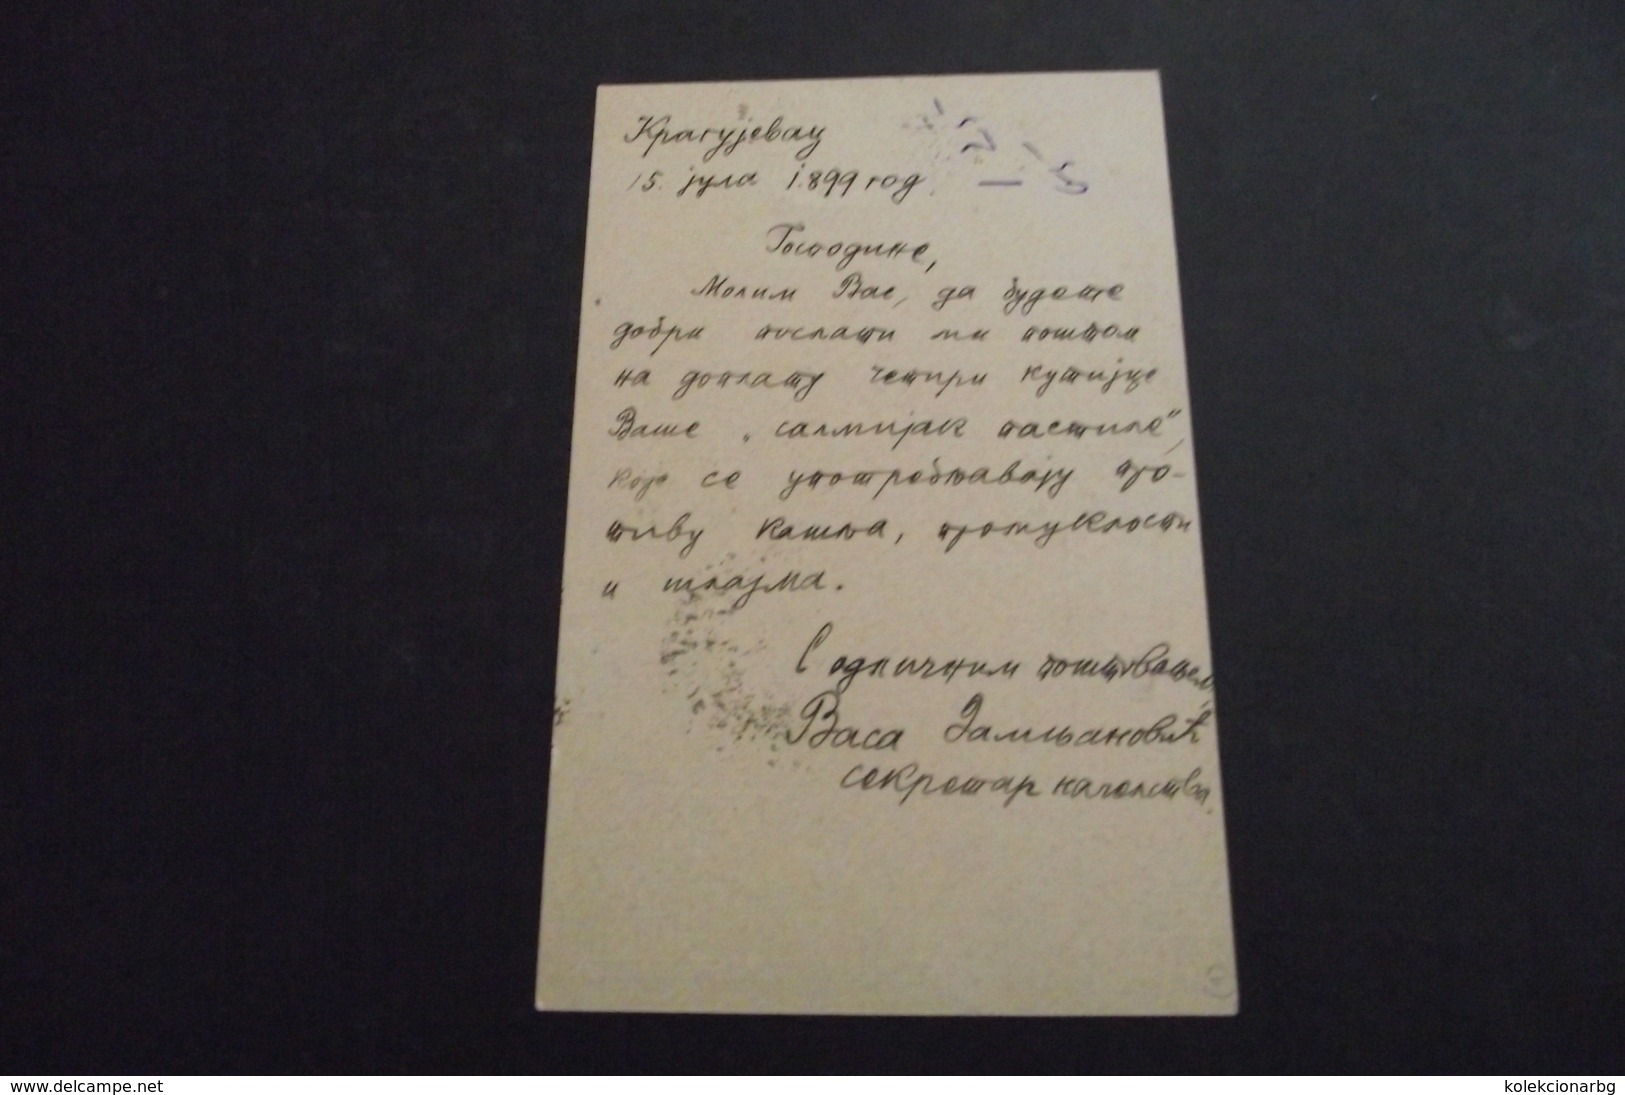 Крагујевац
15. јула 1.899 год.
Господине,
Молим Вас, да будете
добри послати ми поштом
на доплату четири кутијце
Ваше „салмијак пастиле“,
које се употребљавају про-
тиву кашља, промуклости
и шлајма.
С одличним поштовањем,
Васа Дамњановић
секретар начелства.
www.delcampe.net
kolekcionarbg